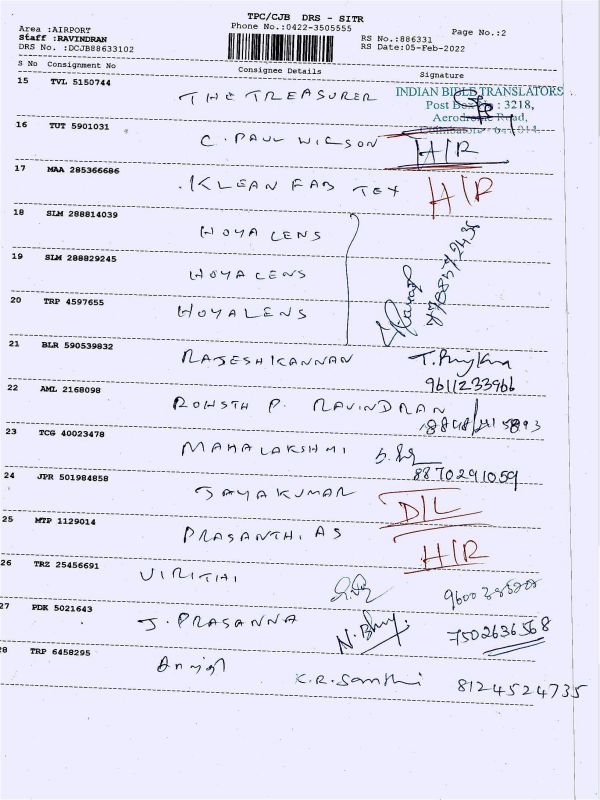 TPC/CJB DRS - SITR
Area :AIRPORT
Phone No.:0422-3505555
Page No.:2
Staff :RAVINDRAN
RS No.:886331
DRS No. :DCJB88633102
RS Date:05-Feb-2022
S No Consignment No Consignee Details Signature
15 TVL 5150744 THE TREASURER
INDIAN BIBLE TRANSLATORS
Post Box : 3218,
Aerodrome Road,
Coimbatore - 641 014.
16 TUT 5901031 C. PAUL WILSON H/R
17 MAA 285366686 KLEAN FAB TEX H/R
18 SLM 288814039 HOYA LENS
19 SLM 288829245 HOYA LENS
20 TRP 4597655 HOYA LENS
21 BLR 590539832 RAJESHKANNAN
9611233966
22 AML 2168098 ROHSTH P. RAVINDRAN
23 TCG 40023478 MAHALAKSHMI
8870291059
24 JPR 501984858 JAYAKUMAR D/L
25 MTP 1129014 PRASANTHI. AS H/R
26 TRZ 25456691 VIRITHI
27 PDK 5021643 J. PRASANNA
7502636568
28 TRP 6458295 K.R. Santhi 8124524735